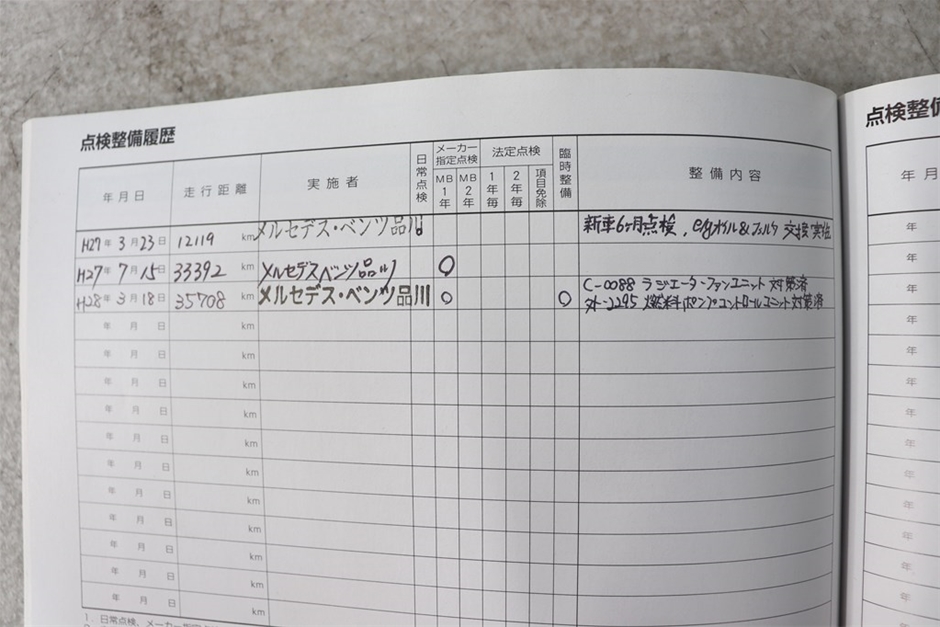 点検整備履歴
点検整備
年月日 走行距離 実施者 日常点検 メーカー指定点検 MB1年 MB2年 法定点検 1年毎 2年毎 項目免除 臨時整備 整備内容
年月
H27年 3月23日 12119 km メルセデス・ベンツ品川 新車6ヶ月点検, e/gオイル&フィルタ 交換実施
H27年 7月15日 33392 km メルセデスベンツ品川 〇
H28年 3月18日 35708 km メルセデス・ベンツ品川 〇 〇 C-0088 ラジエータ・ファンユニット対策済
外-2295 燃料ポンプコントロールユニット対策済
年 月 日 km
年 月 日 km
年 月 日 km
年 月 日 km
年 月 日 km
年 月 日 km
年 月 日 km
年 月 日 km
年 月 日 km
年 月 日 km
1. 日常点検、メーカー指定点